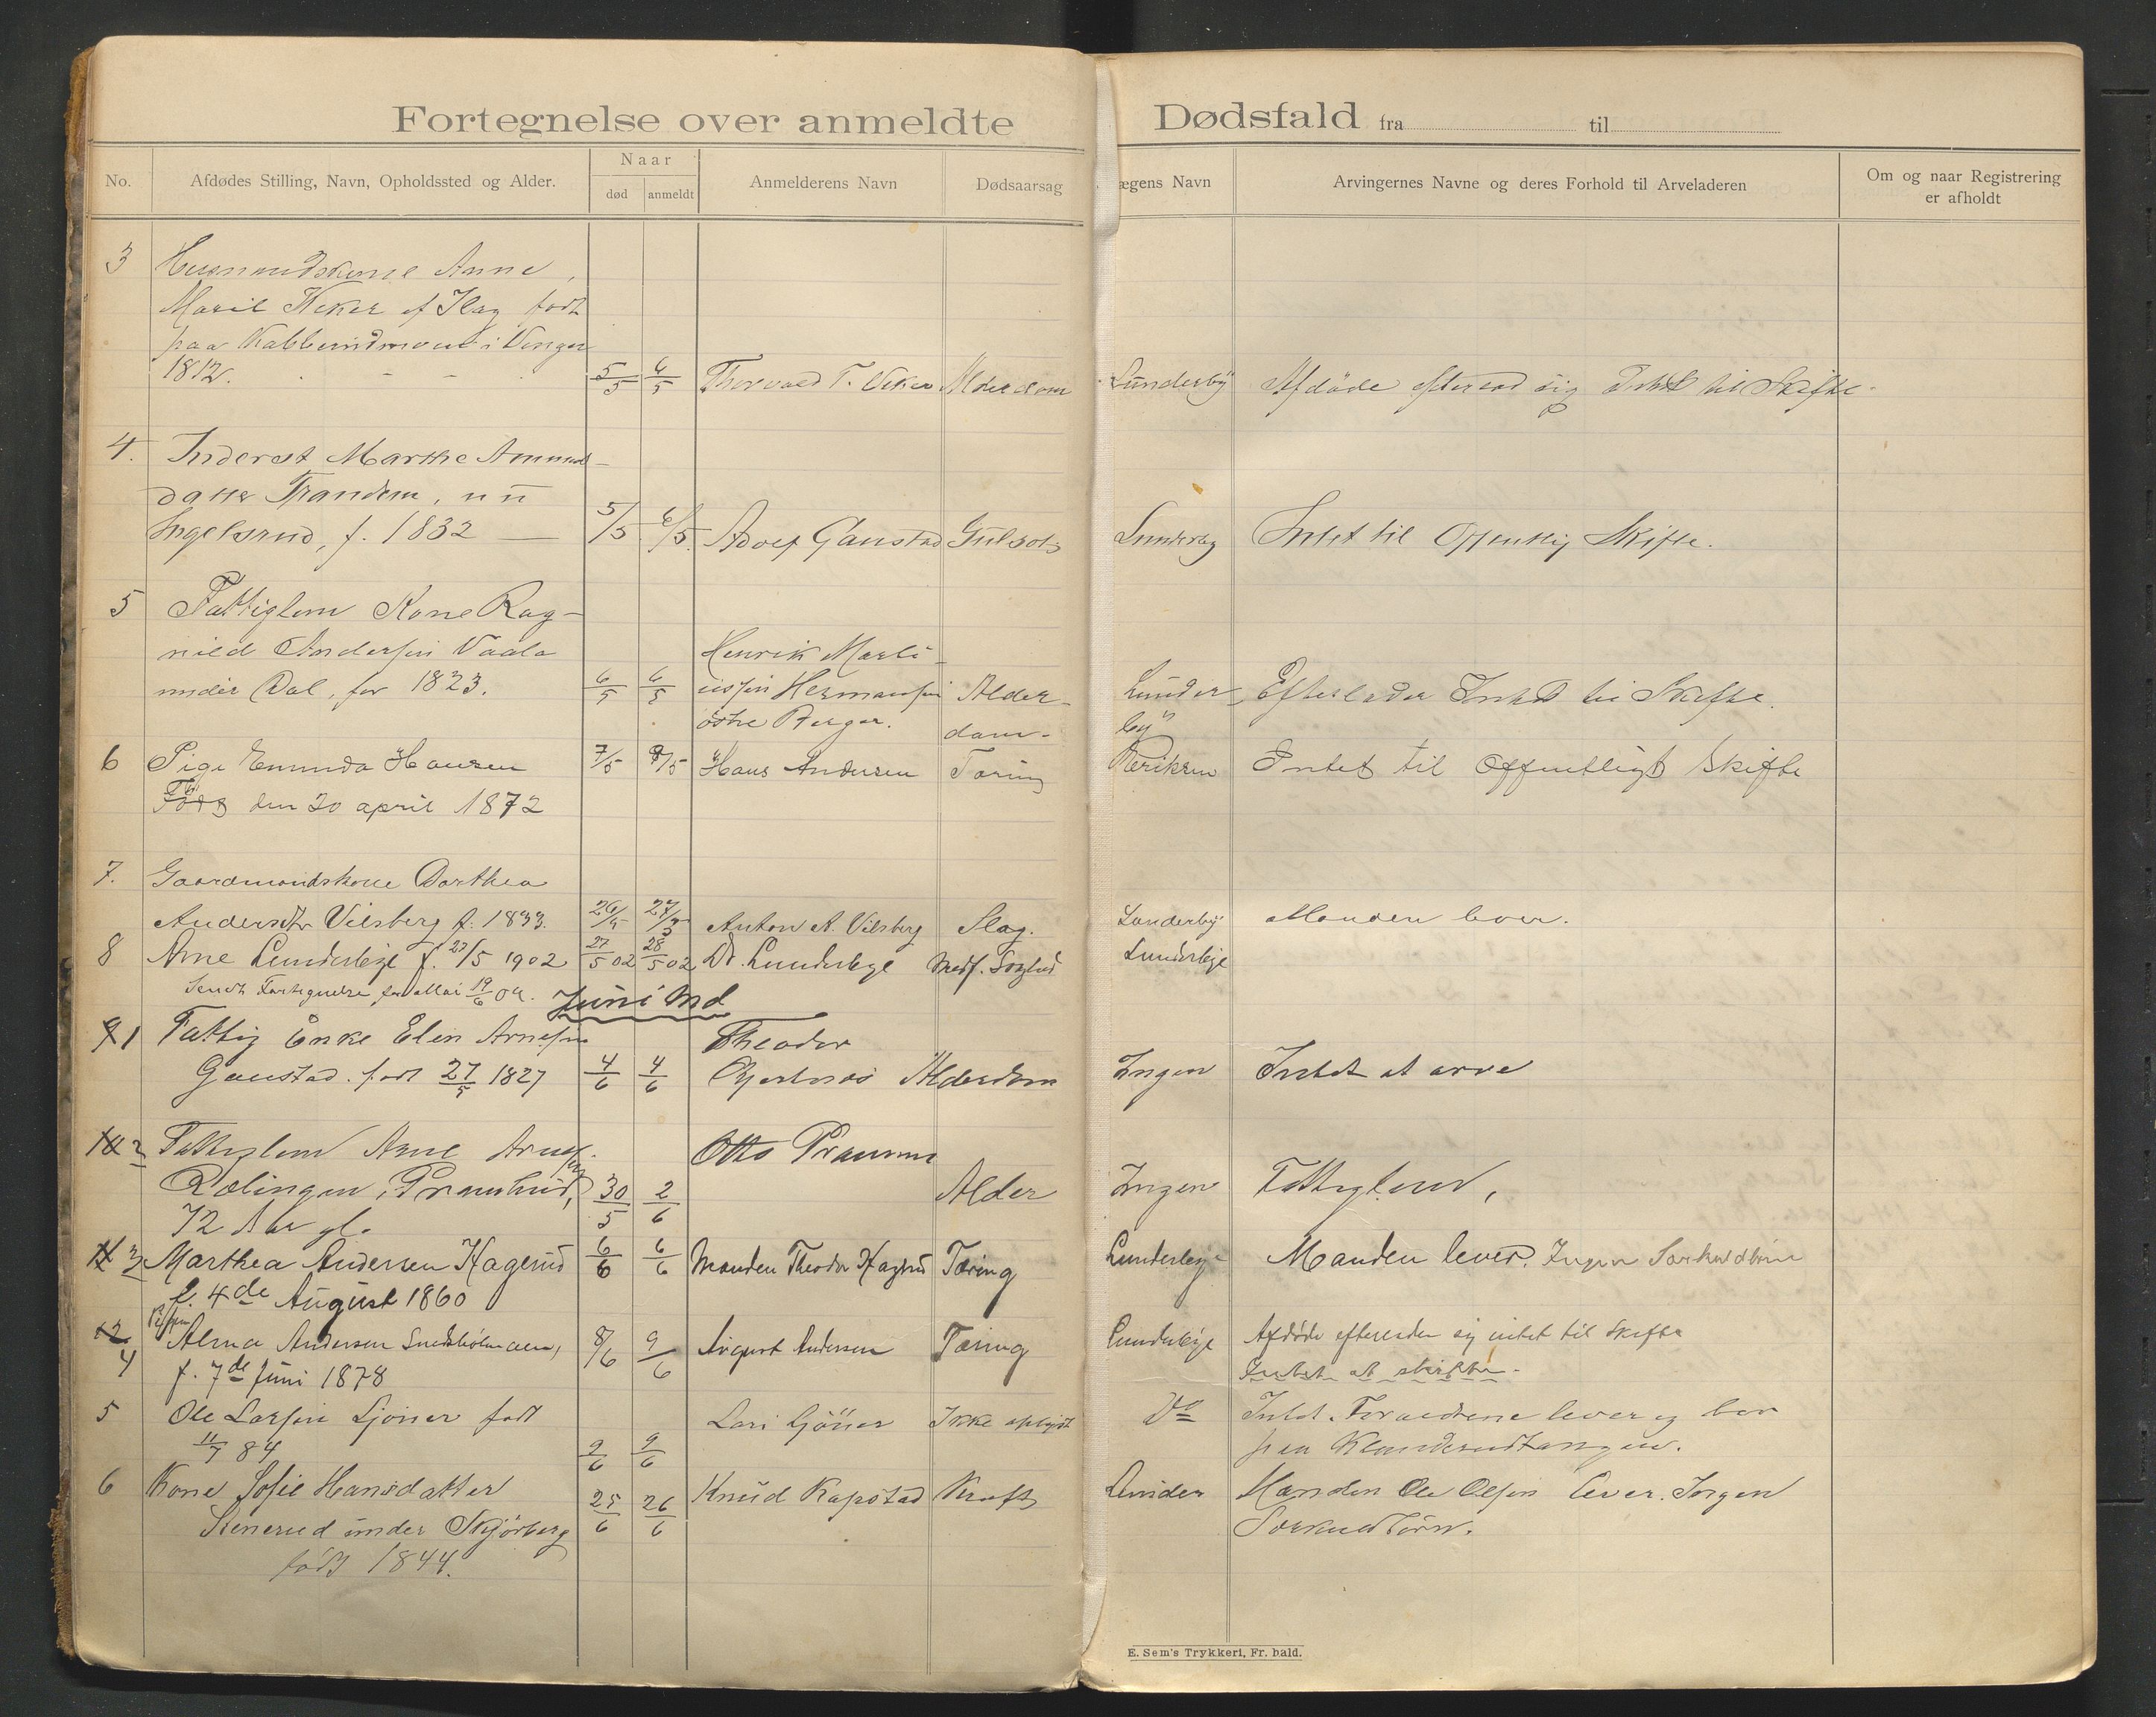 Fortegnelse over anmeldte Dødsfald fra til
No.
Afdødes Stilling, Navn, Opholdssted og Alder.
Naar
død
anmeldt
Anmelderens Navn
Dødsaarsag
ægens Navn
Arvingernes Navne og deres Forhold til Arveladeren
Om og naar Registrering
er afholdt
3 Husmandskone Anne
Marie af født
paa i Vinger
1812. 5/5 6/5 Thorvald T. Alderdom Lunderby Afdøde efterlod sig Intet til Skifte.
4. Inderst Marthe Amunds-
datter Trandem, nu
Ingelsrud, f. 1832 5/5 6/5 Adolf Ganstad Gulsot Lunderby Intet til Offentlig Skifte.
5 Fattiglem Kone Rag-
nild Andersen Vaala Henrik Marti-
under Dal, før 1823. 6/5 6/5 Hermansen Alder- Lunder- Efterlader Intet til Skifte.
østre Berger. dom. by
6 Pige Emunda Hansen 7/5 8/5 Hans Andersen Tæring Intet til Offentligt Skifte
Født den 20 april 1872
7. Gaardmandskone Dorthea
Andersdtr Vilsberg f. 1833. 26/5 27/5 Anton A. Vilsberg Slag. Lunderby Manden lever.
8 Arne Lunderbye f. 27/5 1902 27/5 02 28/5 02 Dr. Lunderbye Medf. Lunderbye
Sendt Fortegnelse for Mai 19/6 02.
Juni Md
9 1 Fattig Enke Elen Arnesen Theodor
Ganstad. født 27/5 1827 4/6 4/6 Alderdom Ingen Intet at arve
10 2 Fattiglem Arne Arnes. Otto
72 Aar gl. 30/5 2/6 Alder Ingen Fattiglem,
11 3 Marthea Andersen Hagerud 6/6 6/6 Manden Theodor Hagerud Tæring Lunderbye Manden lever. Ingen Særkuldbørn
f. 4de August 1860
12 4 Alma Andersen 8/6 9/6 August Andersen Tæring Lunderbye Afdøde efterlader sig intet til Skifte
f. 7de Juni 1878 Intet at skifte.
5 Ole Larsen født Ikke oplyst Do Intet. Forældrene lever og bor
11/7 84 9/6 9/6 paa
6 Kone Sofie Hansdatter 25/6 26/6 Knud Kapstad Kræft Lunder Manden Ole Olsen lever. Ingen
under Skjørberg Særkuldbørn.
født 1844.
E. Sem's Trykkeri, Fr. hald.